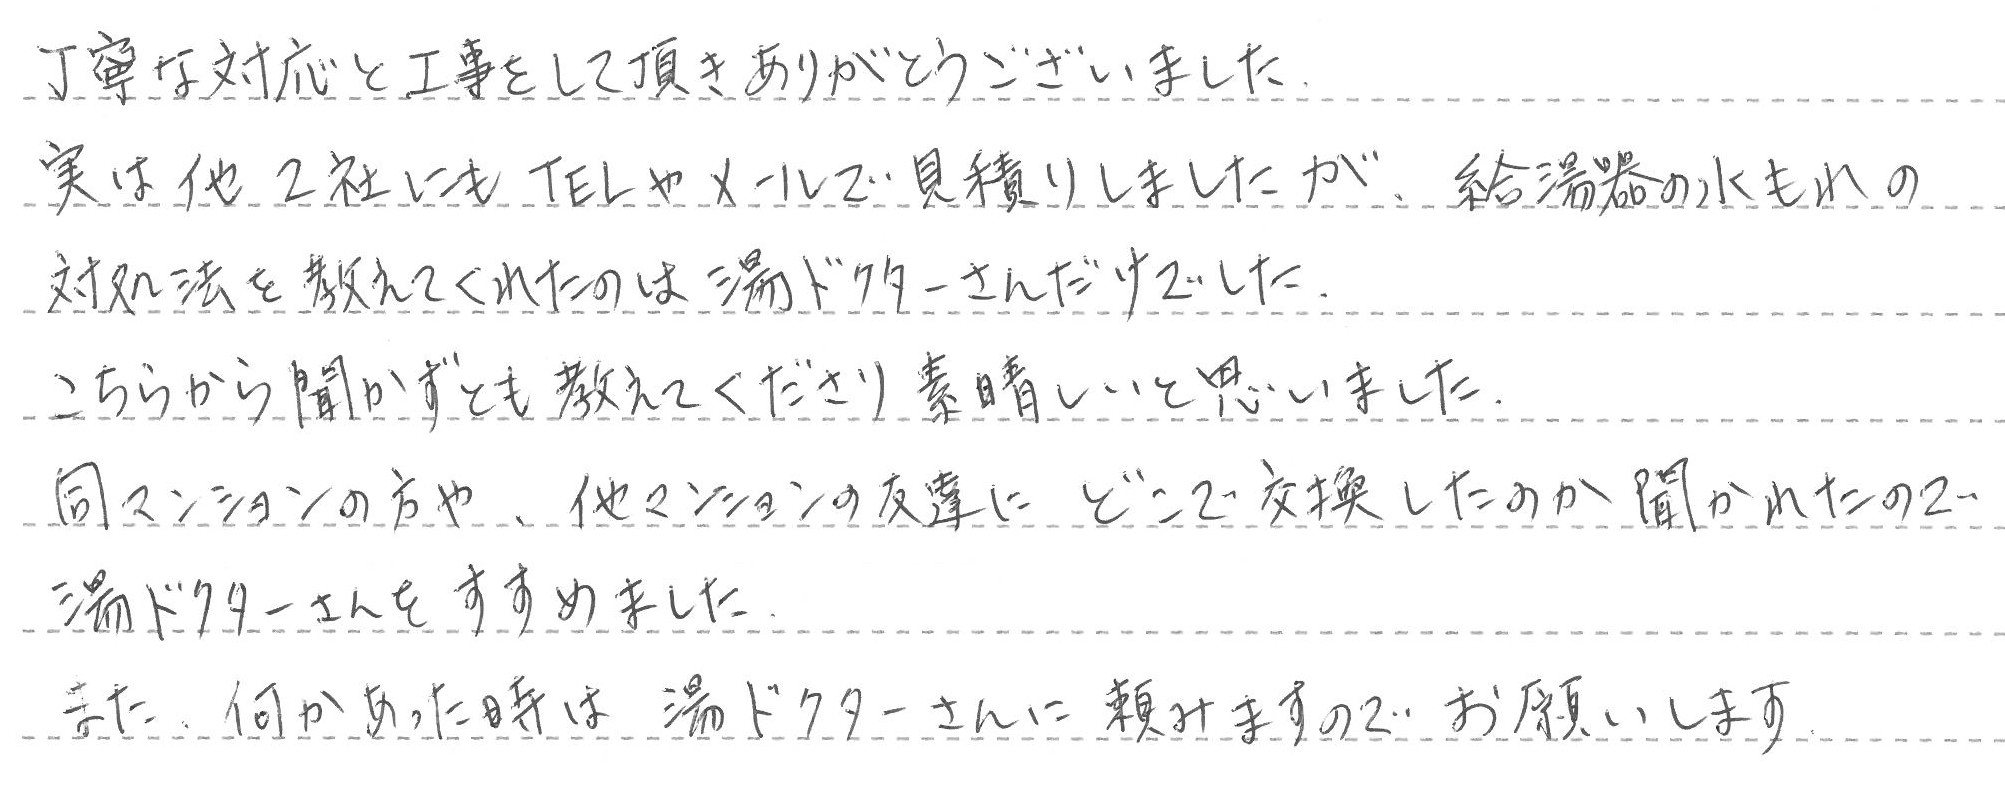 丁寧な対応と工事をして頂きありがとうございました.
実は他2社にもTELやメールで見積りしましたが、給湯器の水もれの
対処法を教えてくれたのは湯ドクターさんだけでした.
こちらから聞かずとも教えてくださり素晴しいと思いました.
同マンションの方や、他マンションの友達にどこで交換したのか聞かれたので
湯ドクターさんをすすめました.
また、何かあった時は湯ドクターさんに頼みますのでお願いします.